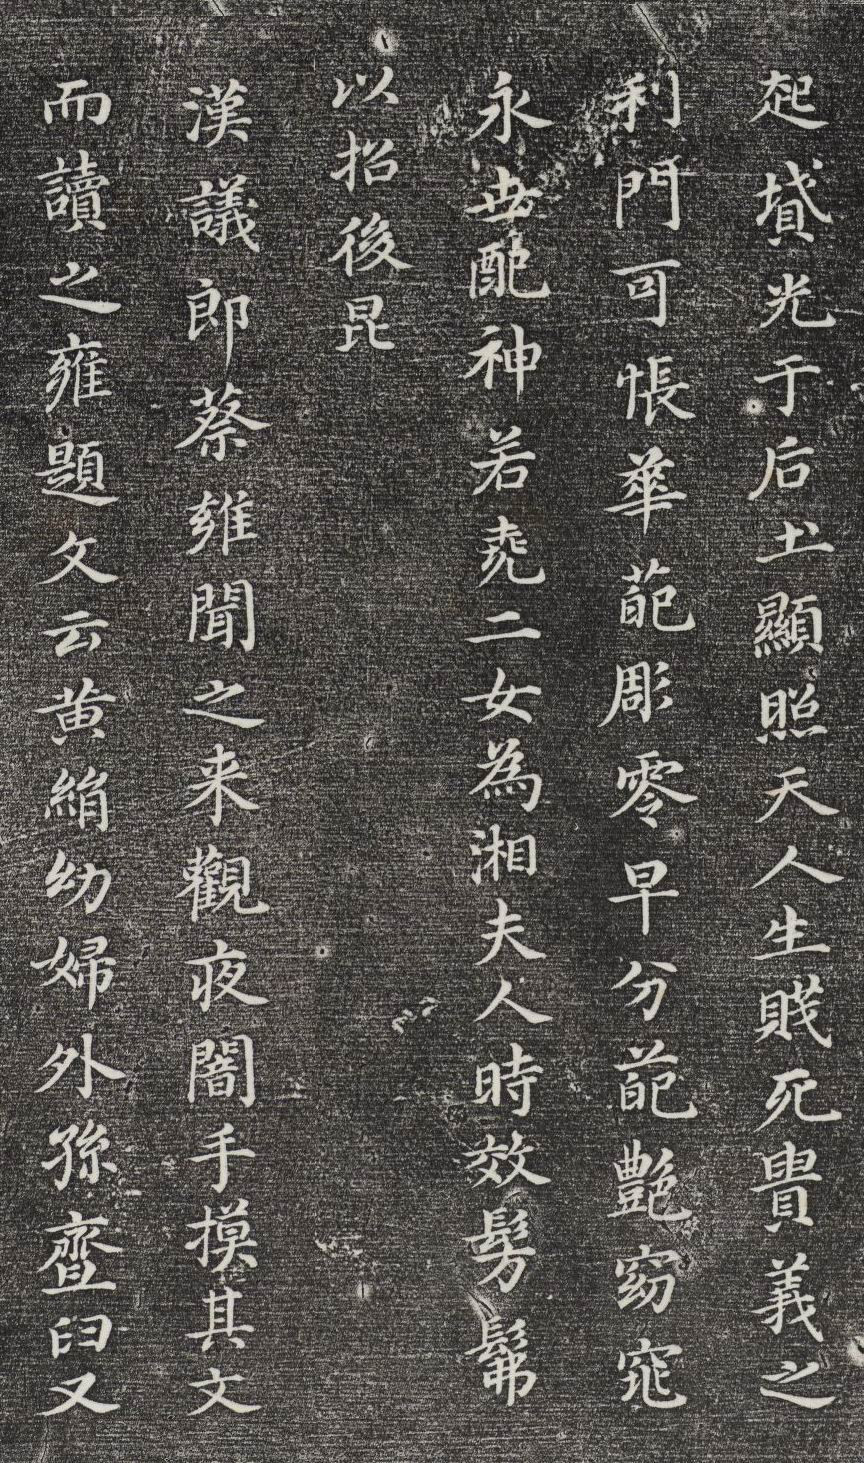 起墳光于后土顯照天人生賤死貴義之
利門可悵華葩彫零早分葩艷窈窕
永世配神若堯二女為湘夫人時效髣髴
以招後昆
漢議郎蔡雍聞之来觀夜闇手摸其文
而讀之雍題文云黄絹幼婦外孫齏臼又